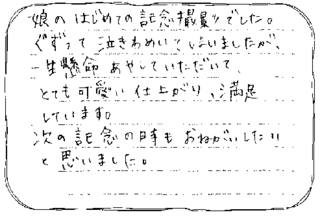 娘のはじめての記念撮影でした。
ぐずって泣きわめいてしまいましたが、
一生懸命あやしていただいて、
とても可愛い仕上がり、満足
しています。
次の記念の時もおねがいしたい
と思いました。